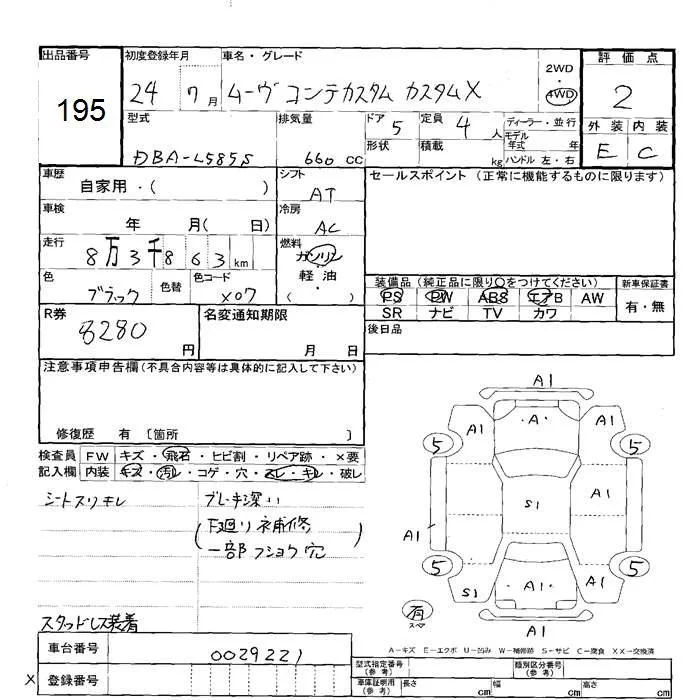 出品番号
195
初度登録年月
24 7月
車名・グレード
ムーヴ コンテカスタム カスタムX
2WD
4WD
評価点
2
外装 内装
E C
型式
DBA-L585S
排気量
660 CC
ドア 5
定員 4 人
形状
積載 kg
ディーラー・並行
モデル年式 年
ハンドル 左・右
車歴
自家用・( )
シフト
AT
車検
年 月( 日)
冷房
AC
走行
8万3千863km
燃料
ガソリン
軽・油
( )
色
ブラック
色替
色コード
X07
セールスポイント(正常に機能するものに限ります)
装備品(純正品に限り○をつけてください)
PS PW ABS エアB AW
SR ナビ TV カワ
新車保証書
有・無
後日品
R券
8280円
名変通知期限
月 日
注意事項申告欄(不具合内容等は具体的に記入して下さい)
修復歴 有 〔箇所 〕
検査員記入欄
FW キズ・飛石・ヒビ割・リペア跡・×要
内装 キズ・汚レ・コゲ・穴・スレ・キレ・破レ
シートスリキレ
ブレーキ深い
(下廻り補修
一部フショク穴)
スタッドレス装着
車台番号
0029221
X 登録番号
A1
A1 A A1
5 5
S1 A1
A1
5 5
S1 A1 A1
A1
有
スペア
A−キズ E−エクボ U−凹み W−補修跡 S−サビ C−腐食 XX−交換済
型式指定番号(参考)
類別区分番号(参考)
車庫証明用(参考)
長さ cm 幅 cm 高さ cm